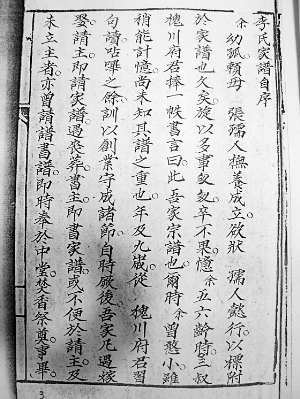 李氏家譜自序
余幼孤賴母　張孺人撫養成立欲狀　孺人懿行以標附
於家譜也久矣旋以多事匆匆卒不果憶余五六齡時三叔
槐川府君捧一帙書言曰此吾家宗譜也爾時余曾憨小雖
稍能計憶尚未知其譜之重也年及九歲從　槐川府君習
句讀呫嗶之餘訓以創業守成諸節自時厥後吾家凡遇嫁
娶請主即請家譜遇喪葬書主即書家譜或不便於請主及
未立主者亦曾請譜書譜即時奉於中堂焚香祭奠事畢
3